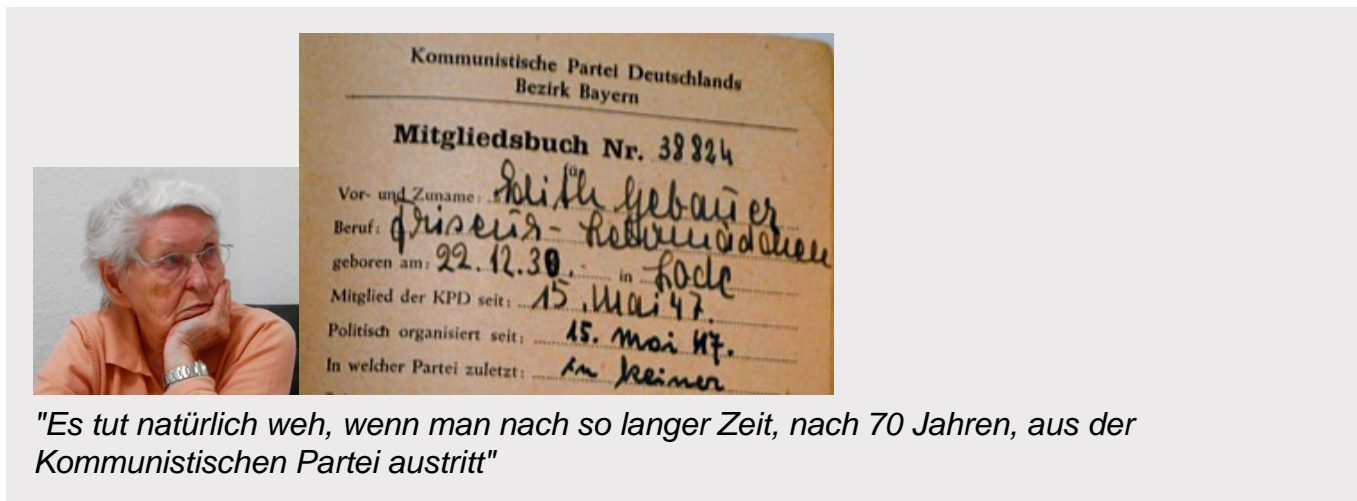 Kommunistische Partei Deutschlands
Bezirk Bayern
Mitgliedsbuch Nr. 38824
für
Vor- und Zuname: Edith Gebauer
Beruf: Friseur-Lehrmädchen
geboren am: 22.12.30. in
Mitglied der KPD seit: 15. Mai 47.
Politisch organisiert seit: 15. Mai 47.
In welcher Partei zuletzt: In keiner
"Es tut natürlich weh, wenn man nach so langer Zeit, nach 70 Jahren, aus der
Kommunistischen Partei austritt"